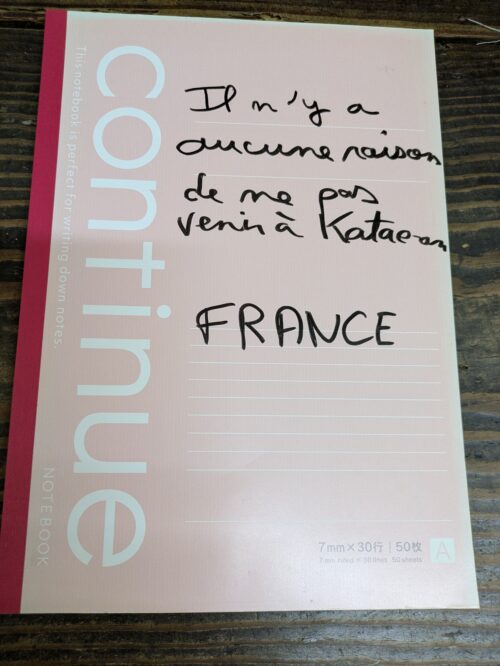 continue
This notebook is perfect for writing down notes.
NOTEBOOK
Il n'y a
aucune raison
de ne pas
venir à Kataean
FRANCE
7mm×30行 50枚
7mm ruled × 30 lines 50 sheets
A